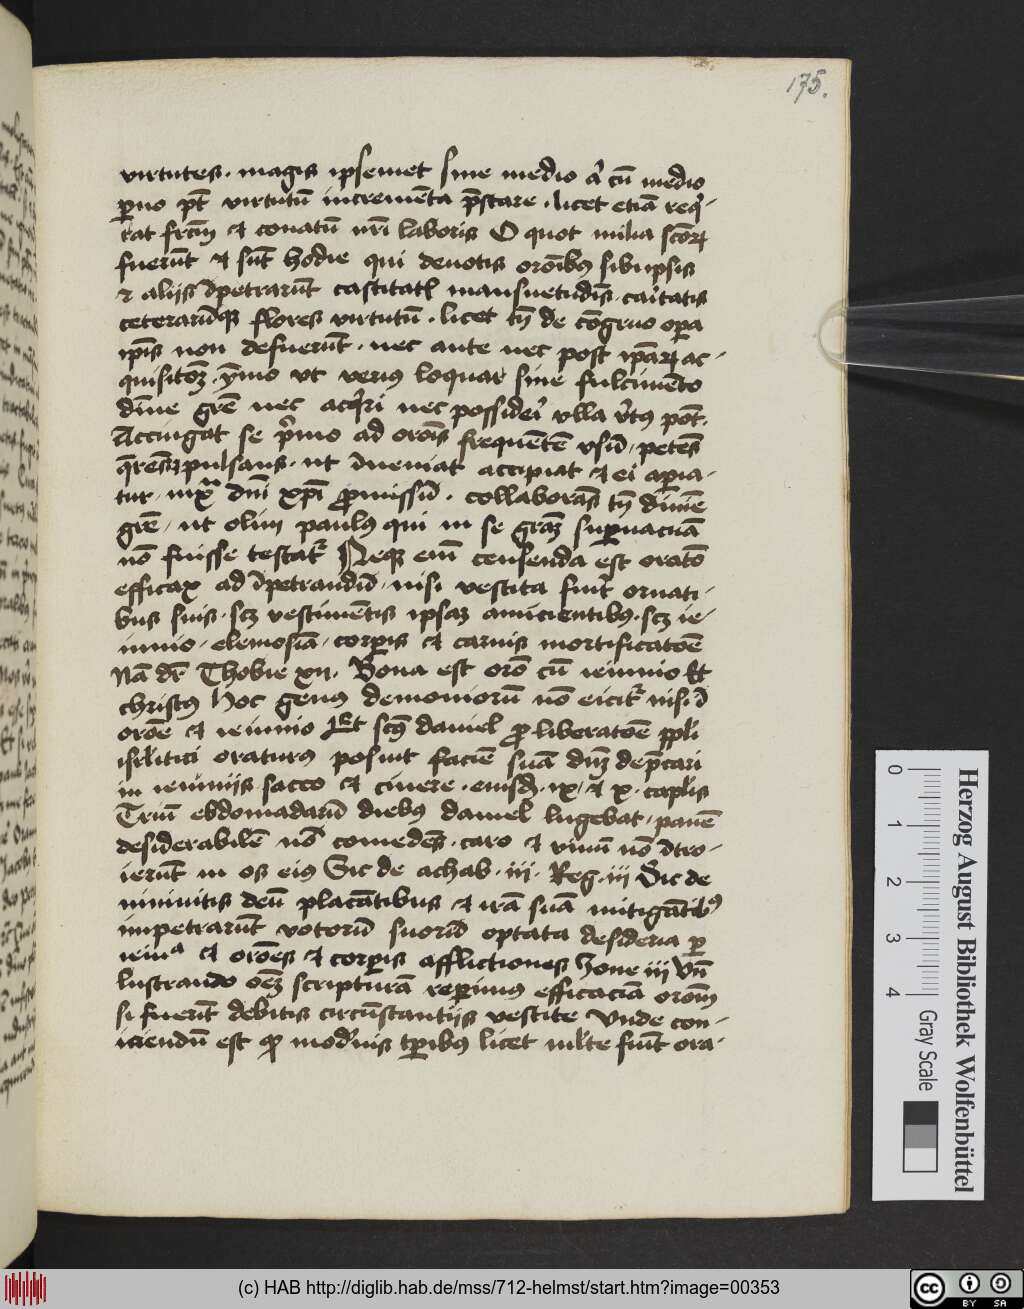 175.
virtutes · magis ipsemet sine medio aut cū medio
pͣuo pt̄ virtutū incremēta p̄stare · licet etiā req̄-
rat frc̄m et conatū nr̄i laboris O quot milia scōrꝝ
fuerūt et sūt hodie qui deuotis orōibꝰ sibiipsis
et alijs īpetrarūt castitatē mansuetudīs · caritatis
ceterarūqꝫ flores virtutū · licet tn̄ de cōgruo opera
ip̄is non defuerūt · nec ante nec post ip̄arꝝ ac-
quisitōꝫ · ymo vt verius loquar sine fulcimēto
diuīe grē nec acq̄ri nec possideri vlla v̄tus pōt ·
Accingat se p̄mo ad orōis frequētē vsū · petēs
q̄rēs pulsans · ut īueniat accipiat et ei aperia-
tur · iuxͣ dn̄i xp̄i ꝓmissū · collaborās tn̄ diuīe
grē · ut olim paulꝰ qui in se grāꝫ suꝑuacuā
nō fuisse testatᷣ Neqꝫ enī censenda est oratō
efficax ad īpetrandū · nisi vestita fuīt ornati-
bus suis · scꝫ vestimētis ipsaꝫ amicientibꝰ · scꝫ ie-
iunio · elemosīa · corꝑis et carnis mortificatōe
Nā dr̄ Thobie xij · Bona est orō cū ieiunio Et
christꝰ Hoc genus demoniorū nō eicitᷣ nisi ī
orōe et ieiunio Et scūs daniel ꝓ liberatōe ppl̄i
isrl̄itici oraturꝰ posuit faciē suā dūꝫ dep̄cari
in ieiunijs sacco et cinere · eiusdē · ix · et x · capl̄is
Triū ebdomadarū diebꝰ daniel lugebat · panē
desiderabilē nō comedēs · caro et vinū nō ītro-
ierūt in os eiꝰ Sic de achab · iij · Reg · iij Sic de
niniuitis deū placātibus et irā suā mitigātibꝰ
impetrarūt votorū suorū optata desideria ꝑ
ieiuͣ et orōes et corꝑis afflictiones Ione iij Vn̄
lustrando oēꝫ scripturā reꝑimus efficaciā orōnū
si fuerūt debitis circūstantijs vestite Vnde con-
iciendū est qꝫ modernis tꝑibꝰ licet ml̄te fiūt ora-
0 1 2 3 4
Gray Scale
Herzog August Bibliothek Wolfenbüttel
(c) HAB http://diglib.hab.de/mss/712-helmst/start.htm?image=00353
cc BY SA